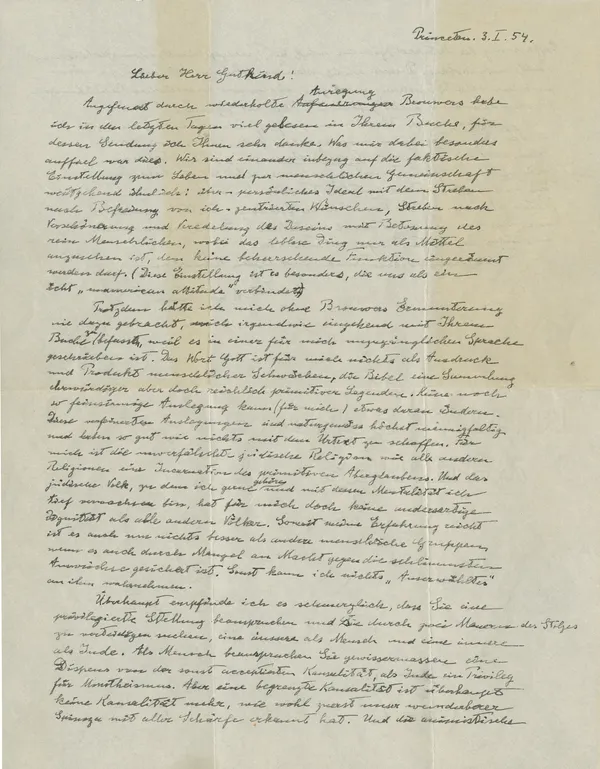 Princeton. 3. I. 54.
Lieber Herr Gutkind!
Angefeuert durch wiederholte Anregung Brouwers habe
ich in den letzten Tagen viel gelesen in Ihrem Buche, für
dessen Sendung ich Ihnen sehr danke. Was mir dabei besonders
auffiel war dies. Wir sind einander inbezug auf die faktische
Einstellung zum Leben und zur menschlichen Gemeinschaft
weitgehend ähnlich: über-persönliches Ideal mit dem Streben
nach Befreiung von ich-zentrierten Wünschen, Streben nach
Verschönerung und Veredelung des Daseins mit Betonung des
rein Menschlichen, wobei das leblose Ding nur als Mittel
anzusehen ist, dem keine beherrschende Funktion eingeräumt
werden darf. (Diese Einstellung ist es besonders, die uns als ein
echt „unamerican attitude" verbindet)
Trotzdem hätte ich mich ohne Brouwers Ermunterung
nie dazu gebracht, mich irgendwie eingehend mit Ihrem
Buche zu befassen, weil es in einer für mich unzugänglichen Sprache
geschrieben ist. Das Wort Gott ist für mich nichts als Ausdruck
und Produkt menschlicher Schwächen, die Bibel eine Sammlung
ehrwürdiger aber doch reichlich primitiver Legenden. Keine noch
so feinsinnige Auslegung kann (für mich) etwas daran ändern.
Diese verfeinerten Auslegungen sind naturgemäss höchst mannigfaltig
und haben so gut wie nichts mit dem Urtext zu schaffen. Für
mich ist die unverfälschte jüdische Religion wie alle anderen
Religionen eine Incarnation des primitiven Aberglaubens. Und das
jüdische Volk, zu dem ich gern gehöre und mit dessen Mentalität ich
tief verwachsen bin, hat für mich doch keine andersartige
Dignität als alle anderen Völker. Soweit meine Erfahrung reicht
ist es auch um nichts besser als andere menschliche Gruppen,
wenn es auch durch Mangel an Macht gegen die schlimmsten
Auswüchse gesichert ist. Sonst kann ich nichts „Auserwähltes"
an ihm wahrnehmen.
Überhaupt empfinde ich es schmerzlich, dass Sie eine
privilegierte Stellung beanspruchen und sie durch zwei Mauern des Stolzes
zu verteidigen suchen, eine äussere als Mensch und eine innere
als Jude. Als Mensch beanspruchen Sie gewissermassen einen
Dispens von der sonst acceptierten Kausalität, als Jude ein Privileg
für Monotheismus. Aber eine begrenzte Kausalität ist überhaupt
keine Kausalität mehr, wie wohl zuerst unser wunderbarer
Spinoza mit aller Schärfe erkannt hat. Und die animistische